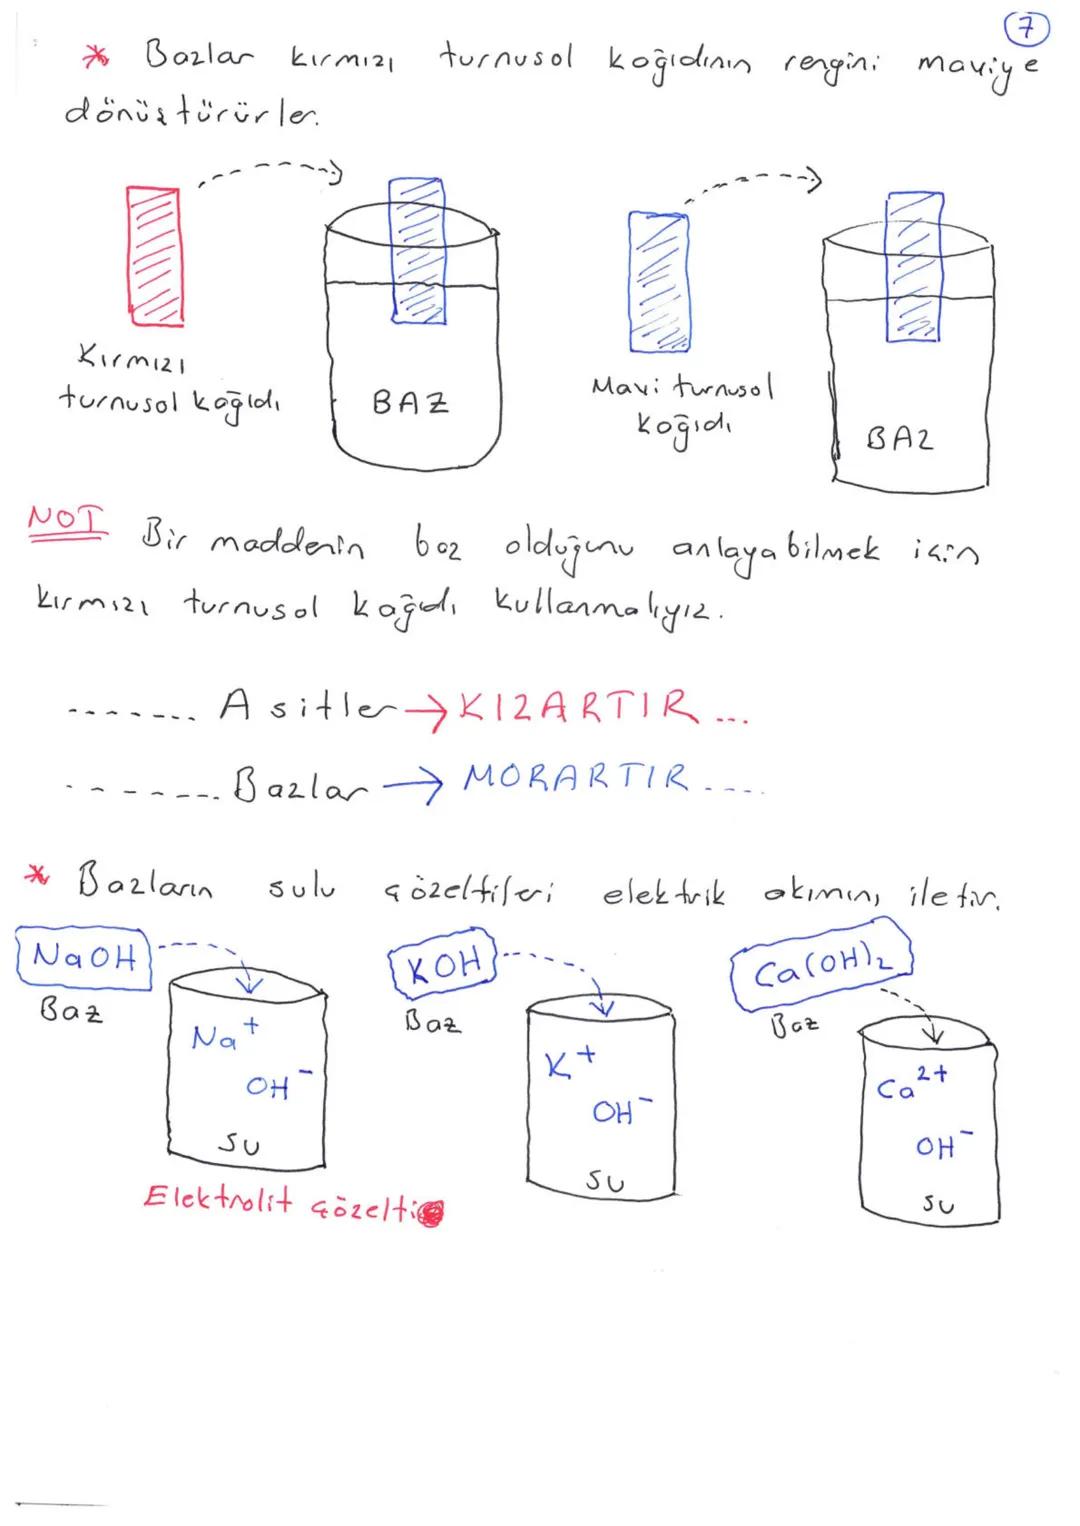 7
* Bazlar kırmızı turnusol kağıdının rengini maviye
dönüştürürler.
Kırmızı
turnusol kağıdı
BAZ
Mavi turnusol
kağıdı
BAZ
NOT Bir maddenin baz olduğunu anlayabilmek için
kırmızı turnusol kağıdı kullanmalıyız.
....... Asitler → KIZARTIR ...
....... Bazlar → MORARTIR ....
* Bazların sulu çözeltileri elektrik akımını iletir.
NaOH
Baz
Na+
OH-
su
KOH
Baz
K+
OH-
su
Ca(OH)2
Baz
Ca2+
OH-
su
Elektrolit çözelti